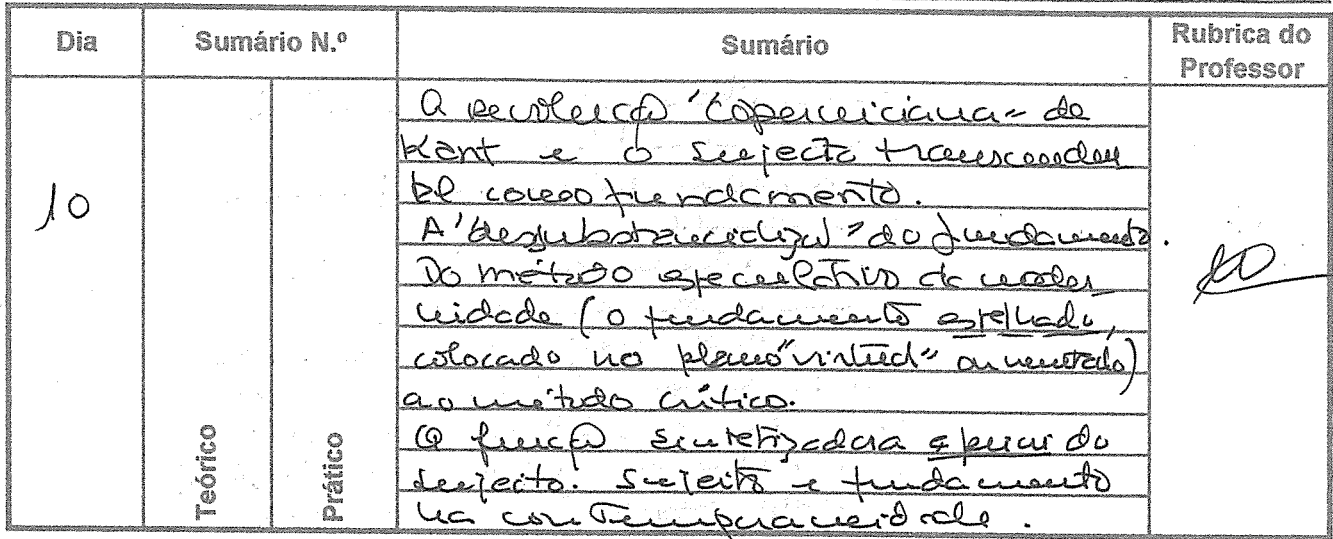 Dia Sumário N.º Sumário Rubrica do Professor
A revolução "Coperniciana" de
Kant e o sujecto transcenden
tal como fundamento.
10
A "desubstancialização" do fundamento.
Do método especulativo da moder
nidade (o fundamento espelhado,
colocado no plano "virtual"
ao método crítico.
A função sintetizadora a priori do
sujeito. Sujeito e fundamento
na contemporaneidade.
Teórico
Prático